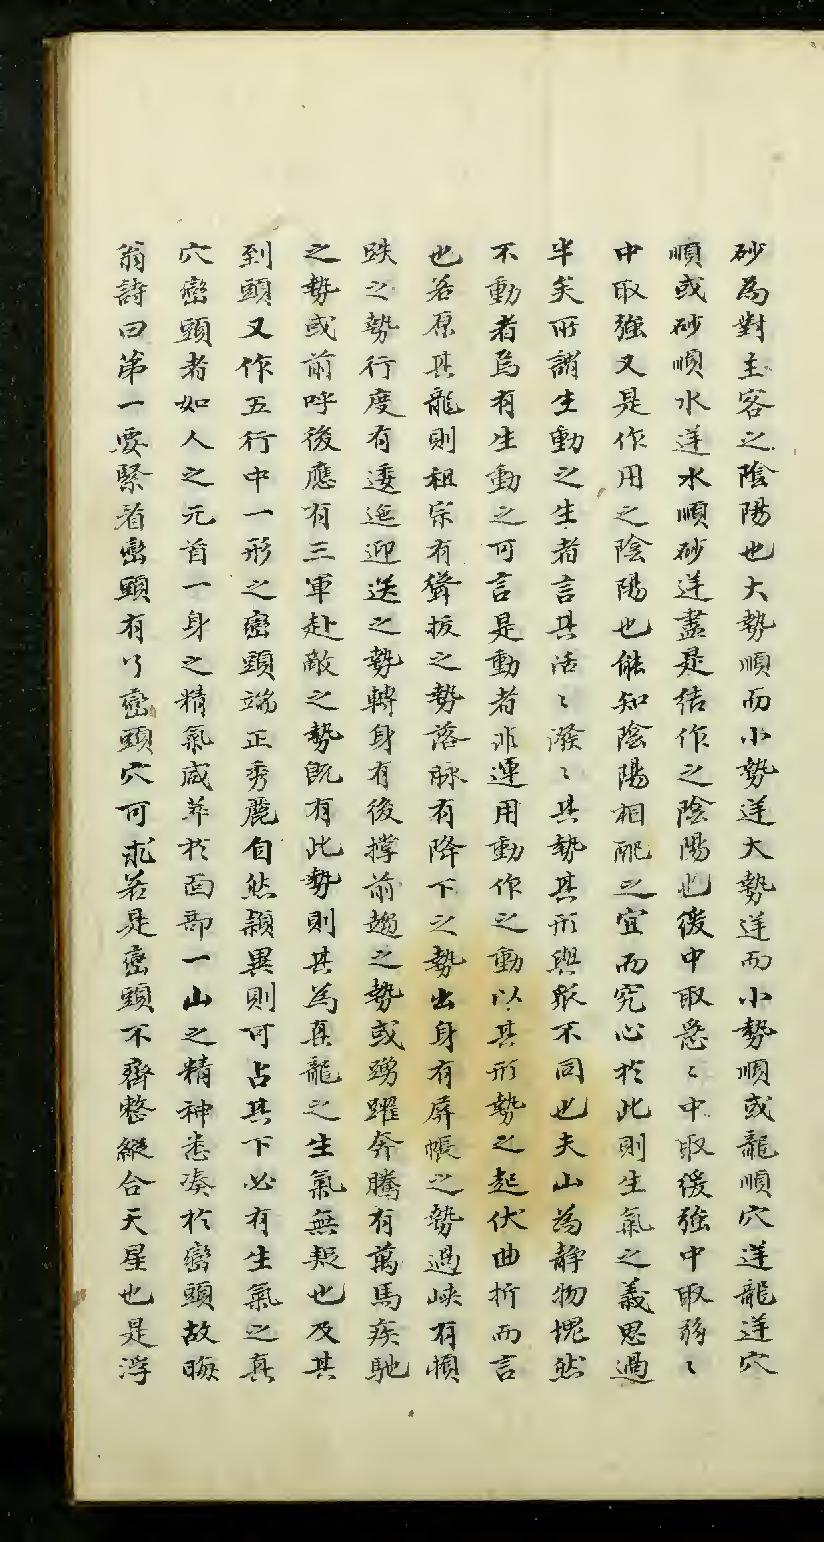 砂為對主客之陰陽也大勢順而小勢逆大勢逆而小勢順或龍順穴逆龍逆穴
順或砂順水逆水順砂逆盡是结作之陰陽也緩中取急〻中取緩強中取弱〻
中取強又是作用之陰陽也能知陰陽相配之宜而究心於此則生氣之義思過
半矣所謂生動之生者言其活〻潑〻其勢其形與眾不同也夫山為靜物塊然
不動者焉有生動之可言是動者非運用動作之動以其形勢之起伏曲折而言
也若原其龍則祖宗有聳拔之勢落脉有降下之勢出身有屏帳之勢過峽有頓
跌之勢行度有逶迤迎送之勢轉身有後撑前趨之勢或踴躍奔騰有萬馬疾馳
之勢或前呼後應有三軍赴敵之勢既有此勢則其為真龍之生氣無疑也及其
到頭又作五行中一形之巒頭端正秀麗自然穎異則可占其下必有生氣之真
穴巒頭者如人之元首一身之精氣咸萃於面部一山之精神悉湊於巒頭故晦
翁詩曰第一要緊看巒頭有了巒頭穴可求若是巒頭不齊整縱合天星也是浮